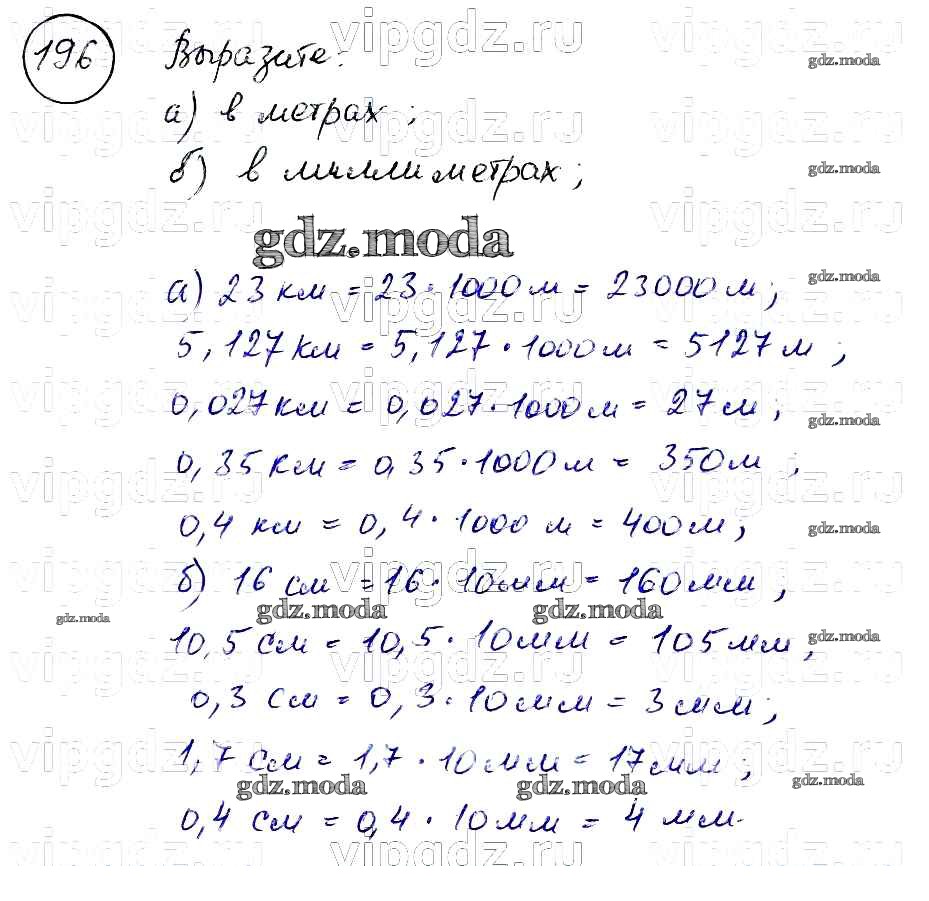 196 Выразите:
а) в метрах;
б) в миллиметрах;
gdz.moda
а) 23 км = 23 · 1000 м = 23000 м;
5,127 км = 5,127 · 1000 м = 5127 м;
0,027 км = 0,027 · 1000 м = 27 м;
0,35 км = 0,35 · 1000 м = 350 м;
0,4 км = 0,4 · 1000 м = 400 м;
б) 16 см = 16 · 10 мм = 160 мм;
10,5 см = 10,5 · 10 мм = 105 мм;
0,3 см = 0,3 · 10 мм = 3 мм;
1,7 см = 1,7 · 10 мм = 17 мм;
0,4 см = 0,4 · 10 мм = 4 мм.
vipgdz.ru